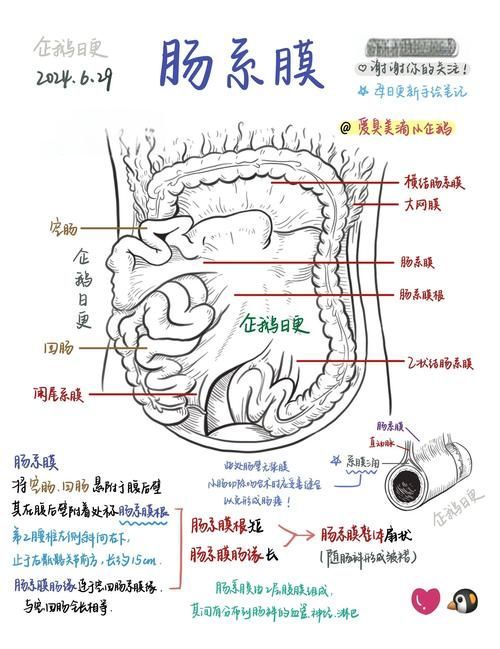 企鹅日更
2024.6.29
肠系膜
♡谢谢你的关注!
☆每日更新手绘笔记
@爱臭美滴小企鹅
横结肠系膜
大网膜
空肠
肠系膜
企鹅日更
肠系膜根
企鹅日更
回肠
乙状结肠系膜
阑尾系膜
肠系膜
将空肠、回肠悬附于腹后壁
其在腹后壁附着处称肠系膜根
第2腰椎左侧斜向右下,
止于右骶髂关节前方,长约15cm.
肠系膜肠缘连于空回肠系膜缘,
与空回肠全长相等.
此处肠壁无浆膜
小肠切除吻合术时应妥善缝合
以免形成肠瘘!
☆系膜三角
肠系膜
直动脉
企鹅日更
肠系膜根短
肠系膜肠缘长
肠系膜整体扇状
(随肠袢形成皱褶)
肠系膜由2层腹膜组成,
其间有分布到肠袢的血管.神经.淋巴